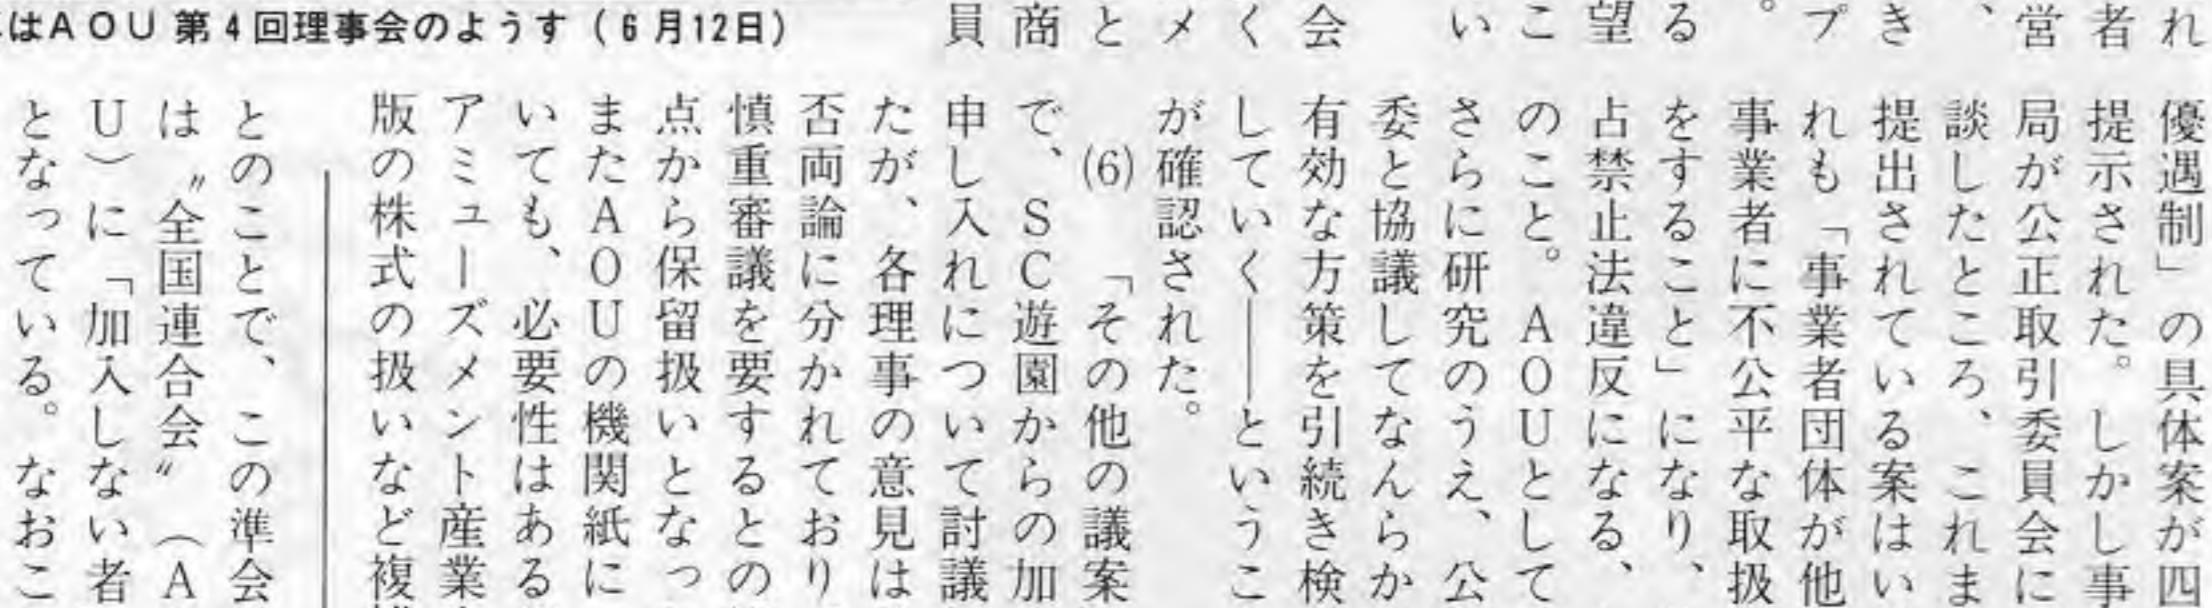 れ
者
営
、
き
プ
。
る
望
こ
い
会
く
メ
と
商
員
はＡＯＵ第4回理事会のようす（6月12日）
優遇制」の具体案が四
提示された。しかし事
局が公正取引委員会に
談したところ、これま
提出されている案はい
れも「事業者団体が他
事業者に不公平な取扱
をすること」になり、
占禁止法違反になる、
のこと。ＡＯＵとして
さらに研究のうえ、公
委と協議してなんらか
有効な方策を引続き検
していく――というこ
が確認された。
(6)　「その他の議案
で、ＳＣ遊園からの加
申し入れについて討議
たが、各理事の意見は
否両論に分かれており
慎重審議を要するとの
点から保留扱いとなっ
またＡＯＵの機関紙に
いても、必要性はある
アミューズメント産業
版の株式の扱いなど複
とのことで、この準会
は〝全国連合会〟（Ａ
Ｕ）に「加入しない者
となっている。なおこ